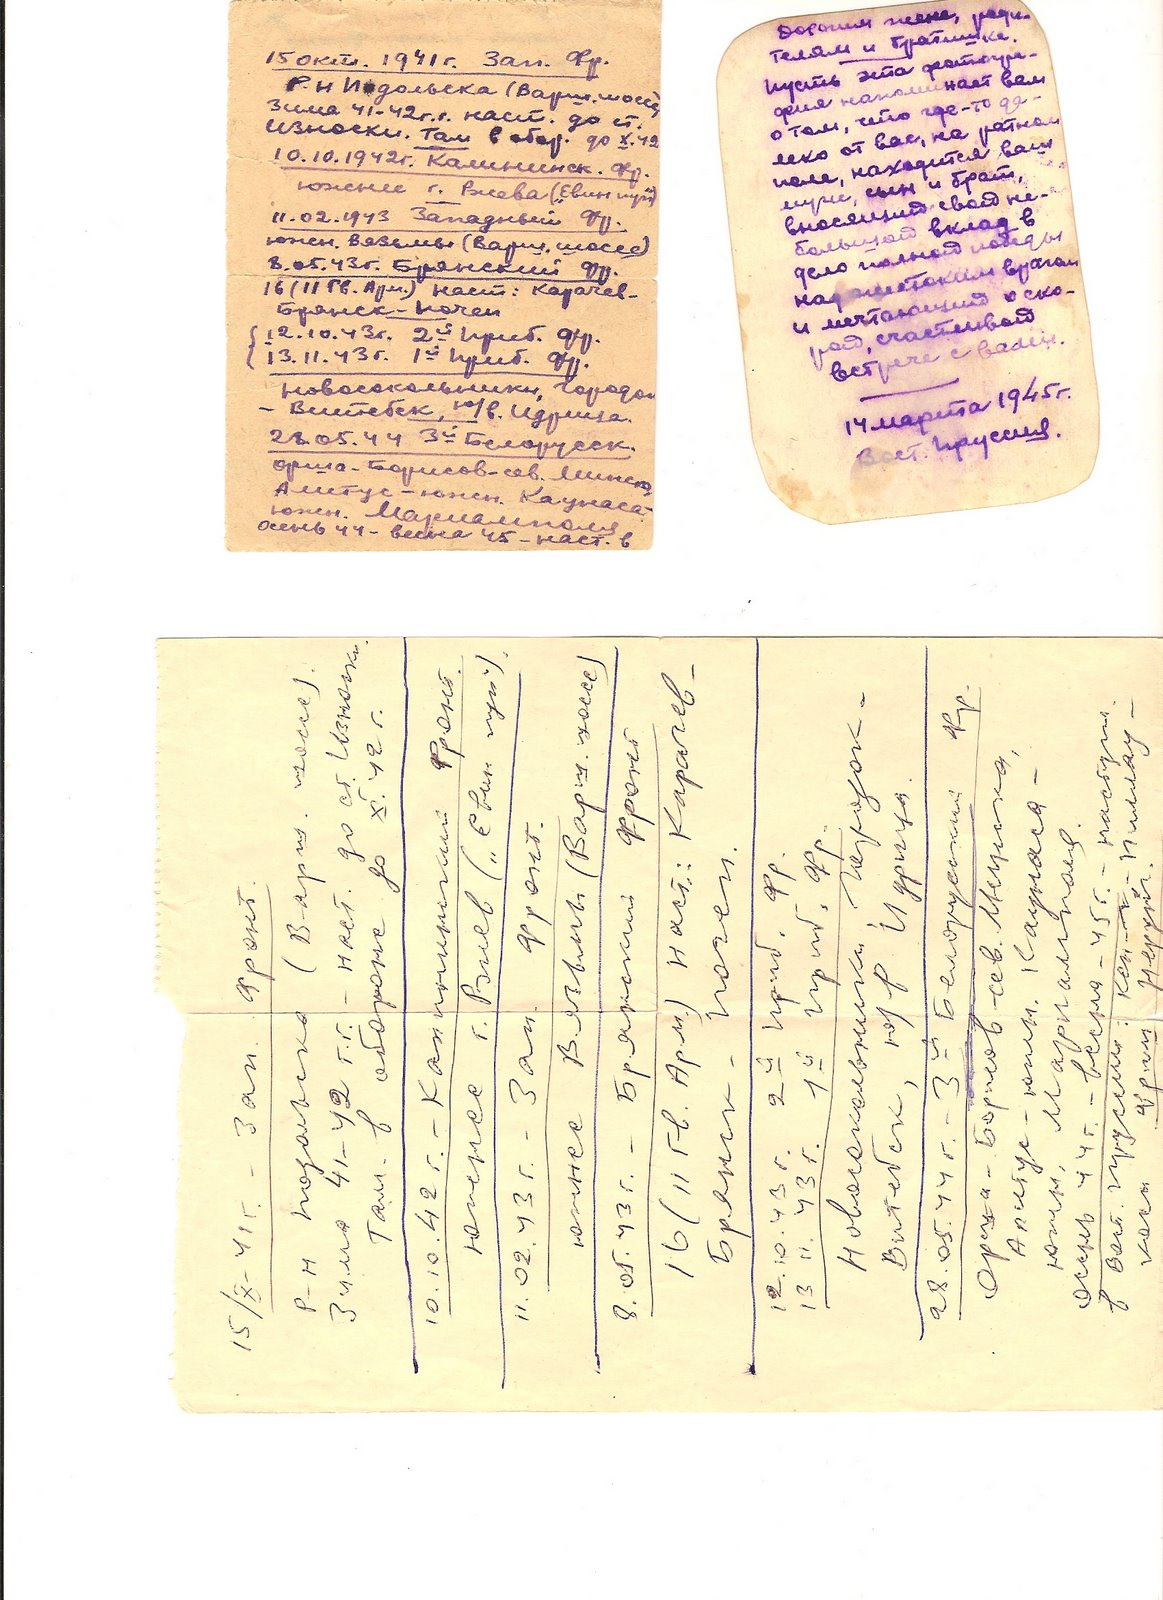 15 окт. 1941 г. Зап. Фр.
Р-н Подольска (Варш. шоссе)
Зима 41-42 г.г. наст. до ст.
Износки. Там в обор. до X.42
10.10.1942 г. Калининск. Фр.
южнее г. Ржева („Евин пуп")
11.02.1943 Западный Фр.
южн. Вязьмы (Варш. шоссе)
8.05.43 г. Брянский Фр.
16 (11 Гв. Арм.) наст: Карачев-
Брянск-Почеп
12.10.43 г. 2й Приб. Фр.
13.11.43 г. 1й Приб. Фр.
Новосокольники, Городок
- Витебск, ю/в. Идрица.
28.05.44 3й Белорусск.
Орша-Борисов-сев. Минска,
Алитус-южн. Каунаса-
южн. Мариамполя
осень 44-весна 45-наст. в
Дорогим жене, роди-
телям и братишке.
Пусть эта фотогра-
фия напоминает вам
о том, что где-то да-
леко от вас, на ратном
поле, находится ваш
муж, сын и брат,
вносящий свой не-
большой вклад в
дело полной победы
над жестоким врагом
и мечтающий о ско-
рой, счастливой
встрече с вами.
14 марта 1945 г.
Вост. Пруссия.
15/X-41 г. - Зап. Фронт.
Р-н Подольска (Варш. шоссе).
Зима 41-42 г.г. - наст. до ст. Износки.
Там - в обороне до X.42 г.
10.10.42 г. - Калининский Фронт.
Южнее г. Ржев („Евин пуп").
11.02.43 г. - Зап. Фронт.
южнее Вязьмы (Варш. шоссе)
8.05.43 г. - Брянский Фронт
16 (11 Гв. Арм.) наст.: Карачев-
Брянск - Почеп.
12.10.43 г. 2й Приб. Фр.
13.11.43 г. 1й Приб. Фр.
Новосокольники, Городок -
Витебск, ю/в Идрица.
28.05.44 г. - 3й Белорусский Фр.
Орша - Борисов - сев. Минска,
Алитус - южн. Каунаса -
южн. Мариамполя.
Осень 44 г. - весна - 45 г. - наступл.
в Вост. Пруссии: Кен-г - Пиллау -
коса Фриш Нерунг.